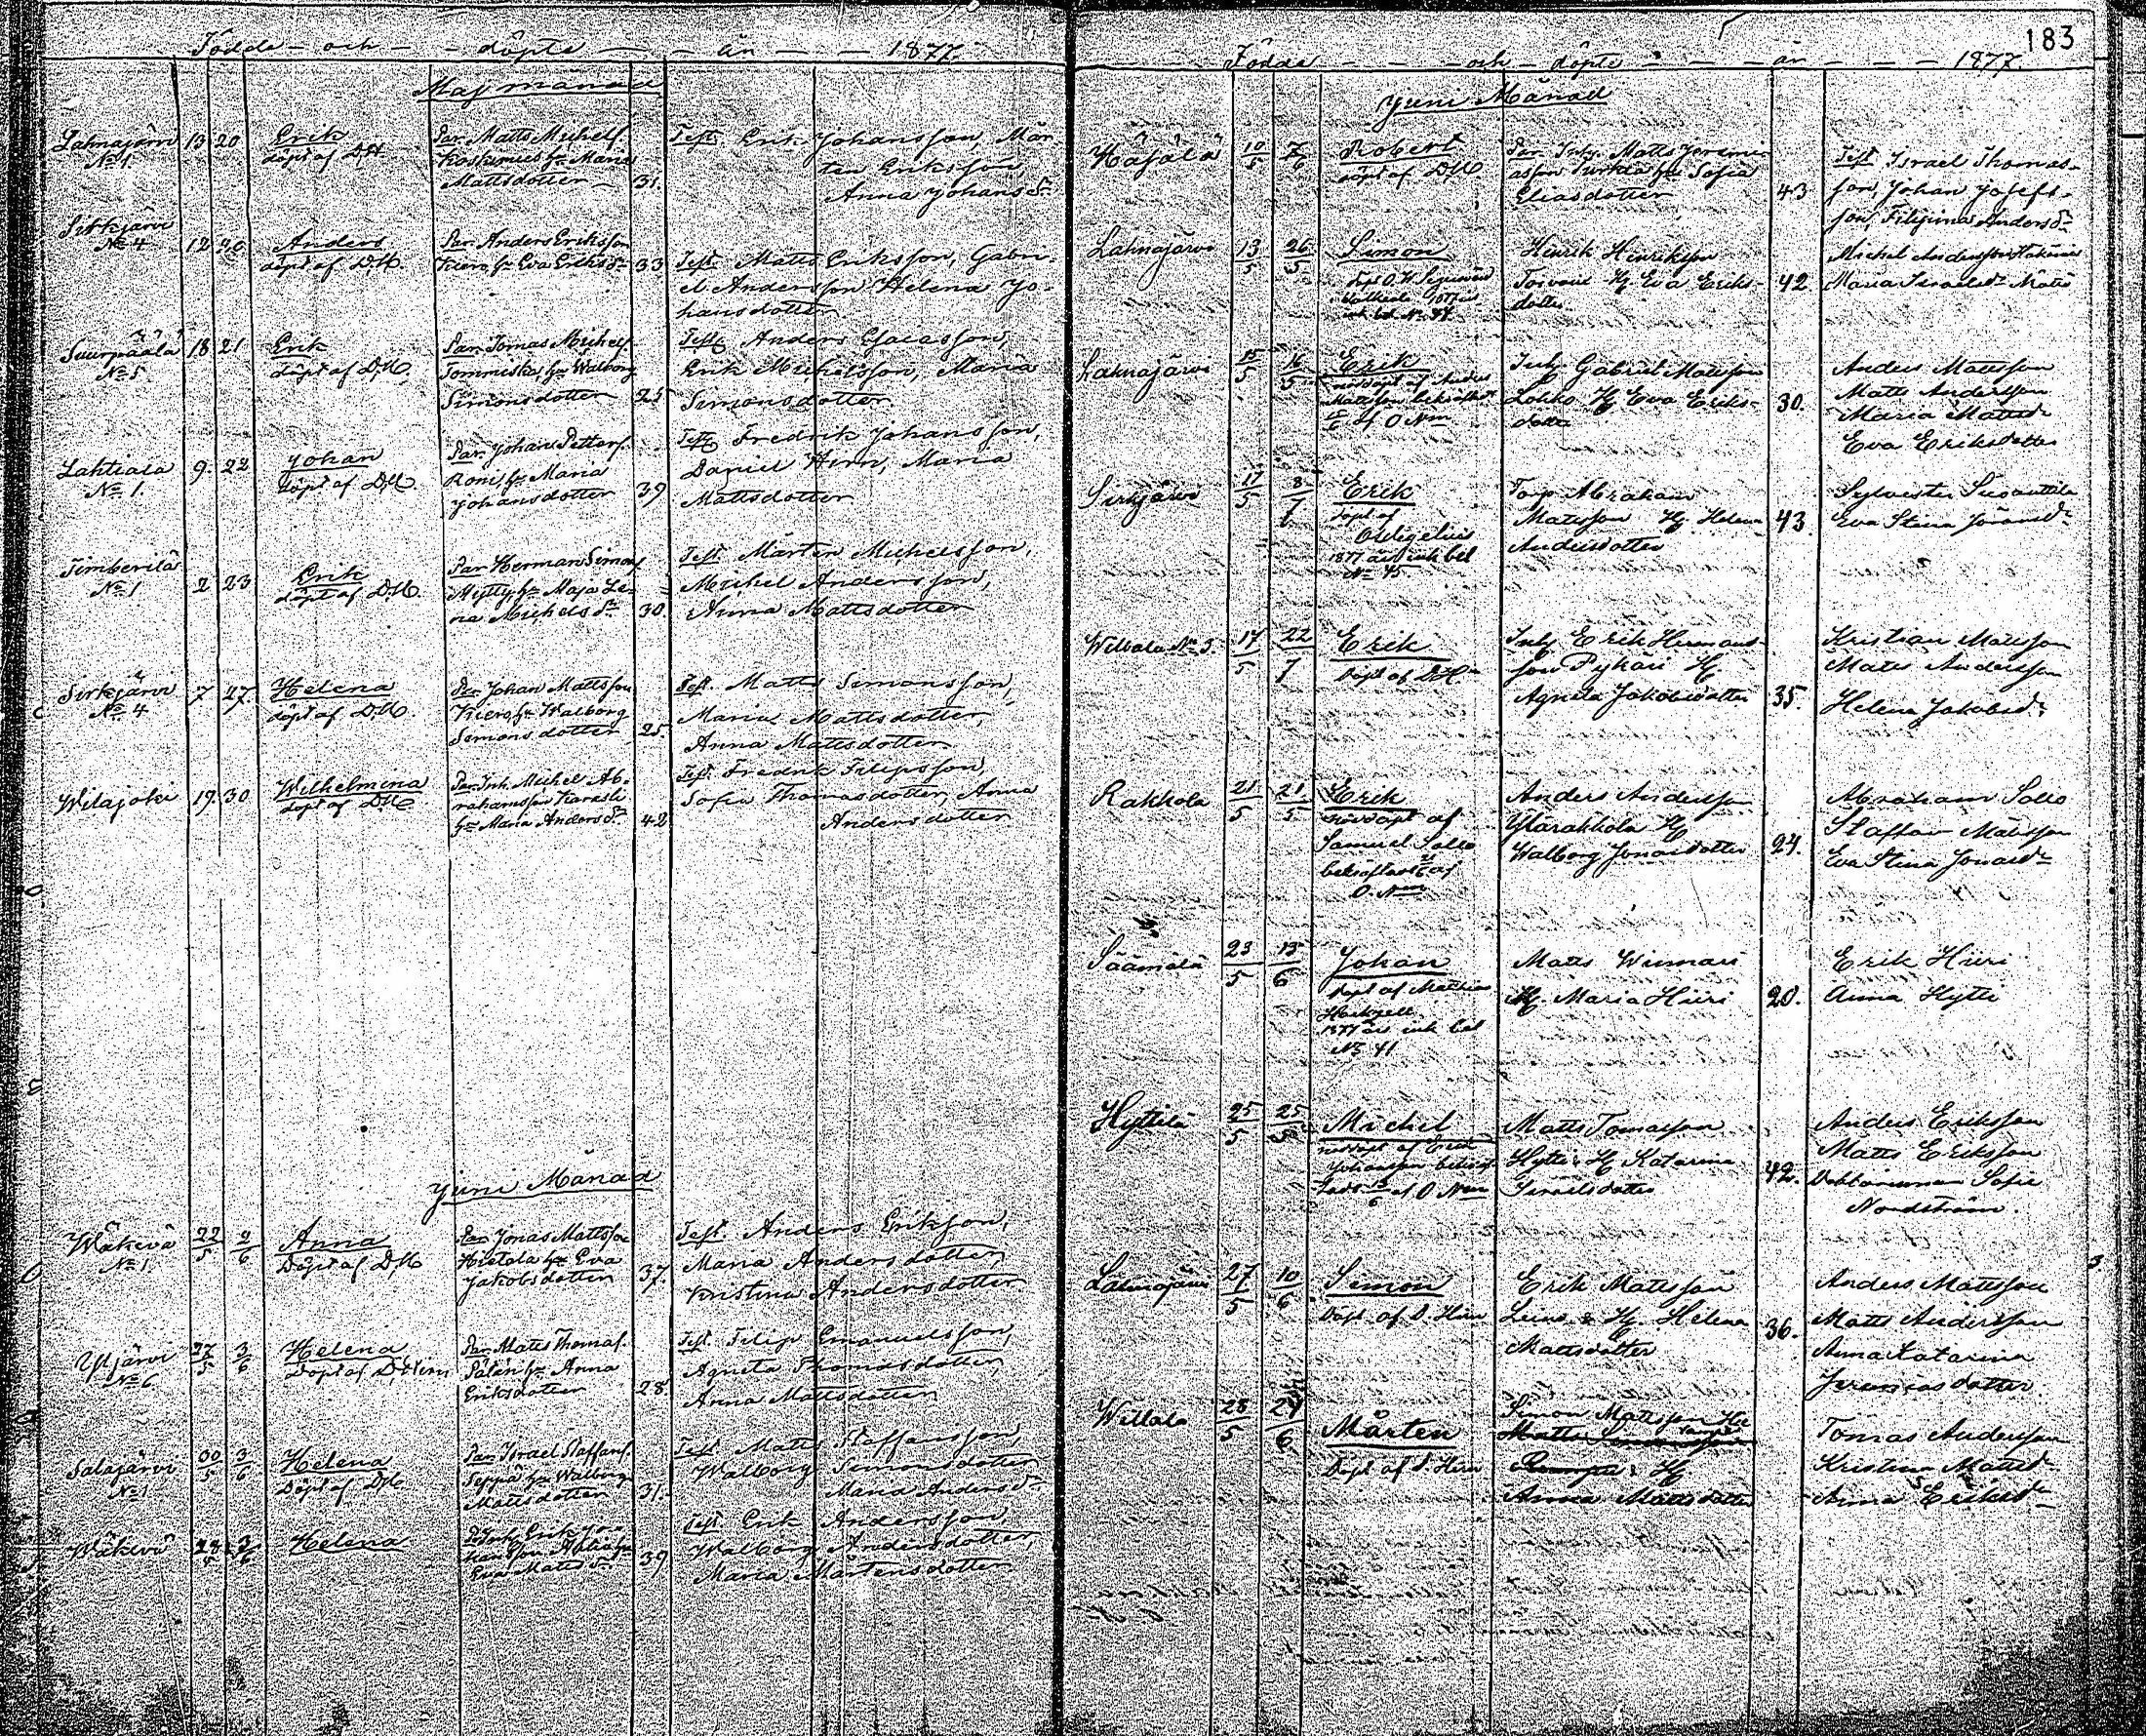 Födde - och - döpte - år - 1877.
Maj månad
Lahnajärvi
No 1
13 20
Erik
döpt af D.H.
Par. Matts Michelss.
Koskimies hu Maria
Mattsdotter
31.
Test. Erik Johansson, Mår-
ten Eriksson,
Anna Johansdr
Sirkjärvi
No 4
12 20
Anders
döpt af D.H.
Par. Anders Eriksson
Kiero, hu Eva Eriksdr
33
Test. Matts Eriksson, Gabri-
el Andersson Helena Jo-
hansdotter
Suurpäälä
No 5
18 21
Erik
döpt af D.H.
Par. Tomas Michels
Tommiska, hu Walborg
Simonsdotter
25
Test. Anders Esaiasson,
Erik Michelsson, Maria
Simonsdotter
Lahtiala
No 1.
9. 22
Johan
döpt af D.H.
Par. Johan Petters.
Roni, hu Maria
Johansdotter
39
Test. Fredrik Johansson,
Daniel Hirn, Maria
Mattsdotter
Timberilä
No 1
2 23
Erik
döpt af D.H.
Par. Herman Simons
Hytty, hu Maja Le-
na Michelsdr
30.
Test. Mårten Michelsson,
Michel Andersson,
Anna Mattsdotter
Sirkjärvi
No 4
7 27
Helena
döpt af D.H.
Par. Johan Mattsson
Kiero, hu Walborg
Simonsdotter
25
Test. Matts Simonsson,
Maria Mattsdotter,
Anna Mattsdotter
Witajoki
19. 30
Wilhelmina
döpt af D.H.
Par. Inh. Michel Ab-
rahamsson
hu Maria Andersdr
42
Test. Fredrik Filipsson,
Sofia Thomasdotter, Anna
Andersdotter
Juni Månad
Wäkevä
No 1
22/5 2/6
Anna
Döpt af D.H.
Par. Jonas Mattsson
Hietala hu Eva
Jakobsdotter
37.
Test. Anders Eriksson,
Maria Andersdotter,
Kristina Andersdotter
Ylijärvi
No 6
27/5 3/6
Helena
Döpt af D. Hirn
Par. Matts Thomas.
hu Anna
Eriksdotter
28
Test. Filip Emanuelsson,
Agneta Thomasdotter,
Anna Mattsdotter
Salajärvi
No 1
30/5 3/6
Helena
Döpt af D.H.
Par. Israel Staffans.
Seppä hu Walborg
Mattsdotter
31.
Test. Matts Staffansson,
Walborg Simonsdotter
Maria Andersdr
Wäkevä
Helena
Inh. Erik Jo-
hansson
Eva Mattsdr
39
Test. Erik Andersson
Walborg Andersdotter,
Maria Mårtensdotter
183
Födda - och - döpte - år - 1877.
Juni Månad
Häsälä
10/5 7/6
Robert
döpt af D.H.
Par. Inh. Matts Jeremi-
asson Turkka hu Sofia
Eliasdotter
43
Test. Israel Thomas-
son, Johan Josefs-
son, Filipina Andersdr
Lahnajärvi
13/5 26/5
Simon
Hinrik Hinriksson
Torvoni H. Eva Eriks-
dotter
42
Michel Andersson
Maria Israelsdr
Lahnajärvi
15/5 16/5
Erik
nöddöpt af Anders
Mattsson bekräftadt
Inh. Gabriel Mattsson
Lohko H. Eva Eriks-
dotter
30.
Anders Mattsson
Matts Andersson
Maria Mattsdr
Eva Eriksdotter
Sirkjärvi
17/5 8/7
Erik
Döpt af
1877 års ink bil
No 45
Torp Abraham
Mattsson H. Helena
Andersdotter
43
Sylvester Suvanttila
Eva Stina Jöransdr
Willala No 5
17/5 22/7
Erik
Döpt af D.H.
Inh. Erik Hermans-
son Pykäri H.
Agneta Jakobsdotter
35.
Kristian Mattsson
Matts Andersson
Helena Jakobsdr
Rakkola
21/5 21/5
Erik
nöddöpt af
Samuel Sallo
bekräftadt af
D. Hirn
Anders Andersson
Ylärakkola H.
Walborg Jonasdotter
24.
Abraham Sallo
Staffan Mattsson
Eva Stina Jonasdr
Säämälä
23/5 13/6
Johan
Döpt af Mathias
1877 års ink bil
No 41
Matts Winnari
H. Maria Hiiri
20.
Erik Hiiri
Anna Hytti
Hyttilä
25/5 25/5
Michel
nöddöpt af Erik
Johansson bekräf-
Matts Tomasson
Hytti H. Katarina
Israelsdotter
42.
Anders Eriksson
Matts Eriksson
Doktorinnan Sofie
Nordström.
Lahnajärvi
27/5 10/6
Simon
Döpt af D. Hirn
Erik Mattsson
Leino & H. Helena
Mattsdotter
36.
Anders Mattsson
Matts Andersson
Anna Katarina
Jeremiasdotter
Willala
28/5 24/6
Mårten
Döpt af D. Hirn
Simon Mattsson
& H.
Anna Mattsdotter
Tomas Andersson
Kristina Mattsdr
Anna Eriksdr